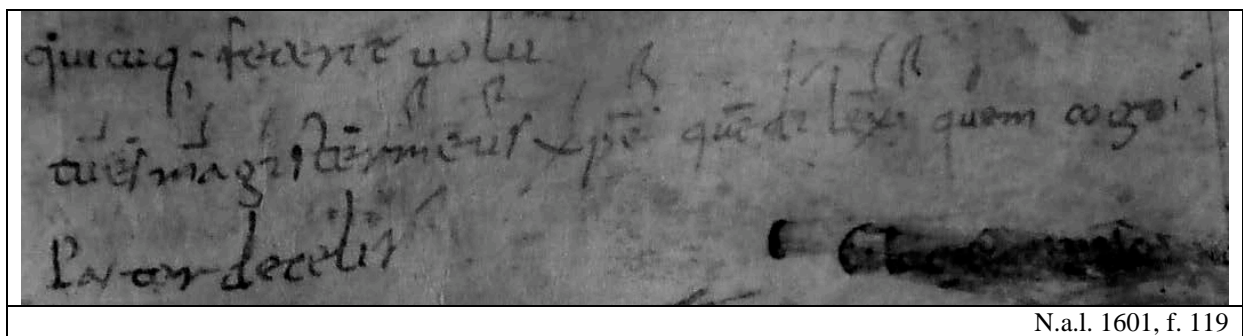 quicuq; fecerit uolu
tu es magister meus xpe que dilexi quem
Pater de celis
N.a.l. 1601, f. 119